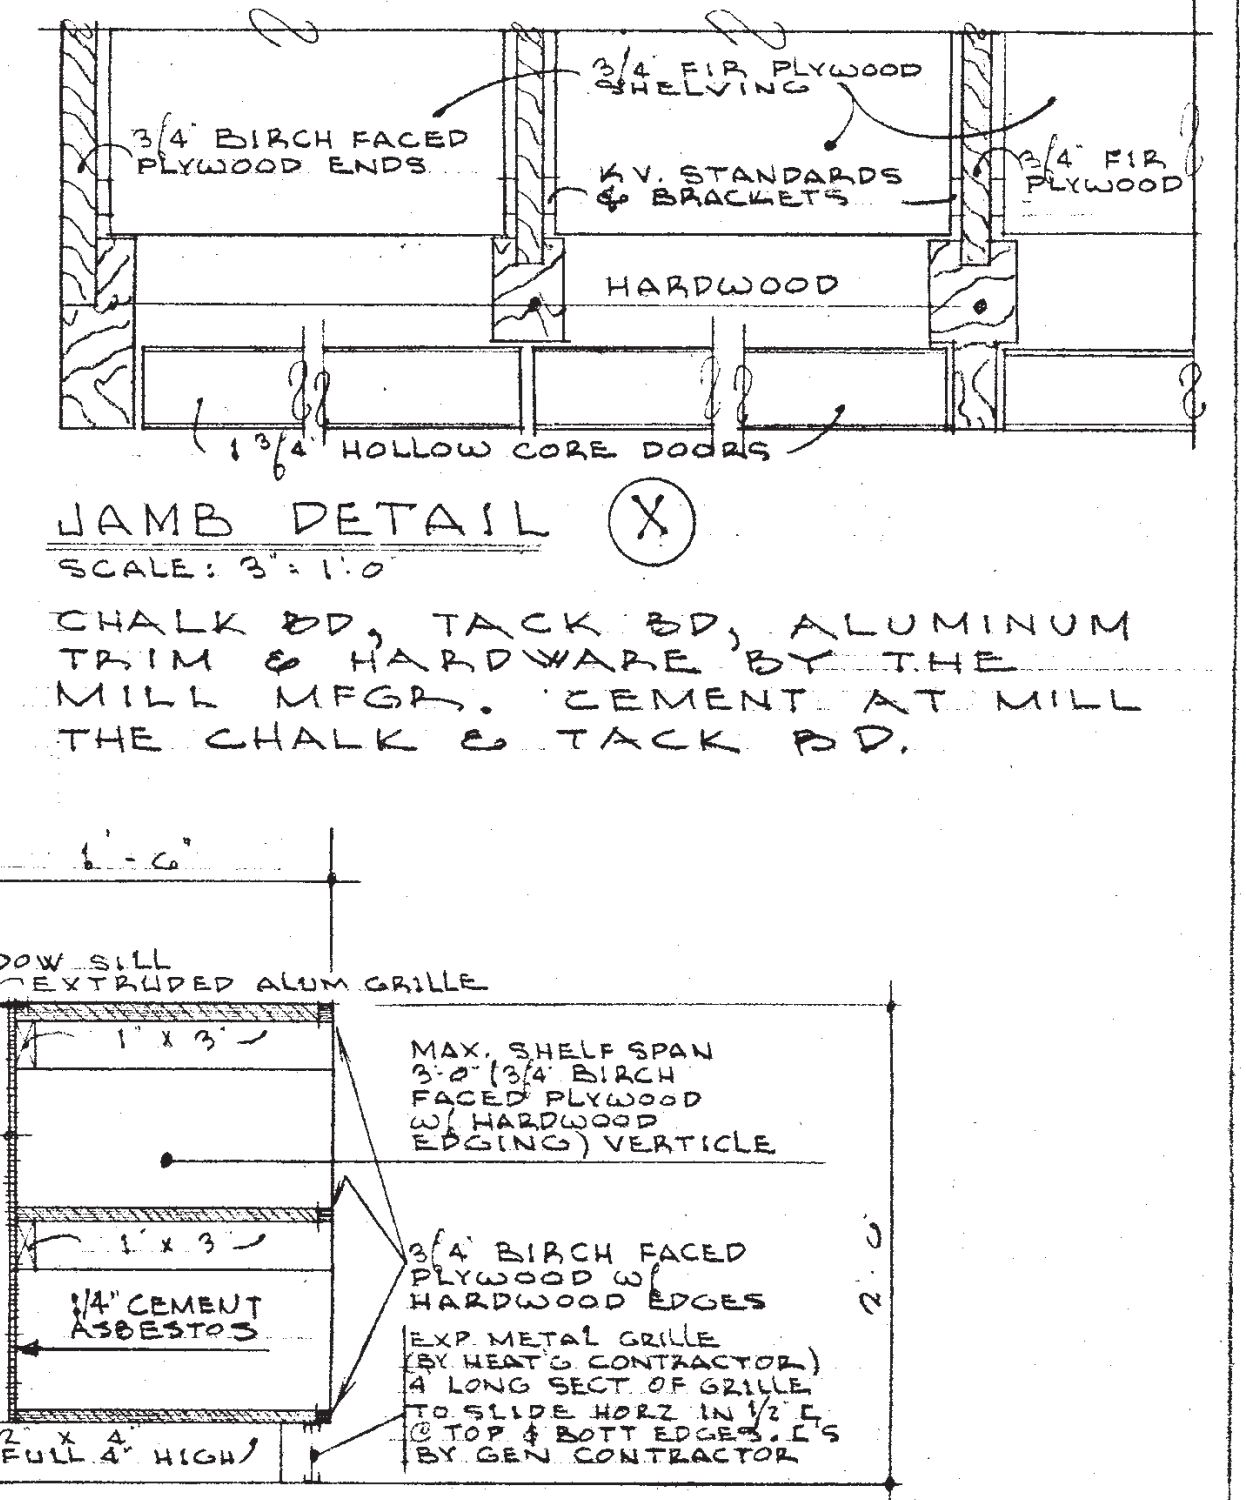 3/4" FIR PLYWOOD
SHELVING
3/4" BIRCH FACED
PLYWOOD ENDS
K.V. STANDARDS
& BRACKETS
3/4" FIR
PLYWOOD
HARDWOOD
1 3/4" HOLLOW CORE DOORS
JAMB DETAIL X
SCALE: 3" = 1'-0"
CHALK BD, TACK BD, ALUMINUM
TRIM & HARDWARE BY THE
MILL MFGR. CEMENT AT MILL
THE CHALK & TACK BD.
1'-6"
DOW SILL
EXTRUDED ALUM GRILLE
1" X 3"
MAX. SHELF SPAN
3'-0" (3/4" BIRCH
FACED PLYWOOD
W/ HARDWOOD
EDGING) VERTICLE
1" X 3"
3/4" BIRCH FACED
PLYWOOD W/
HARDWOOD EDGES
2'-0"
1/4" CEMENT
ASBESTOS
EXP. METAL GRILLE
(BY HEAT'G CONTRACTOR)
4' LONG SECT OF GRILLE
TO SLIDE HORZ IN 1/2" [
@ TOP & BOTT EDGES. ['S
BY GEN CONTRACTOR
2" X 4"
FULL 4" HIGH